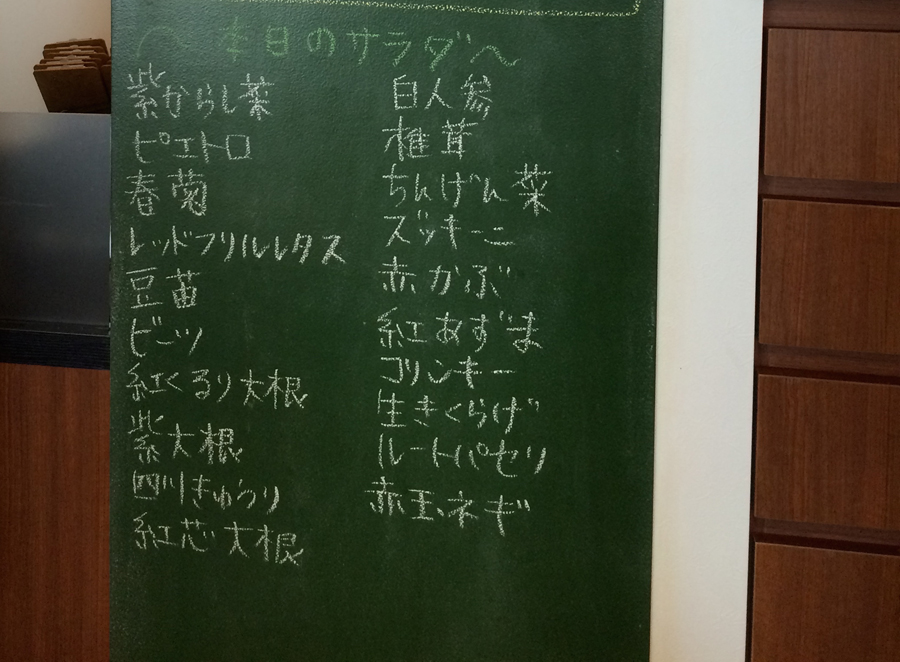 〜 本日のサラダ 〜
紫からし菜
ピエトロ
春菊
レッドフリルレタス
豆苗
ビーツ
紅くるり大根
紫大根
四川きゅうり
紅芯大根
白人参
椎茸
ちんげん菜
ズッキーニ
赤かぶ
紅あずま
コリンキー
生きくらげ
ルートパセリ
赤玉ネギ